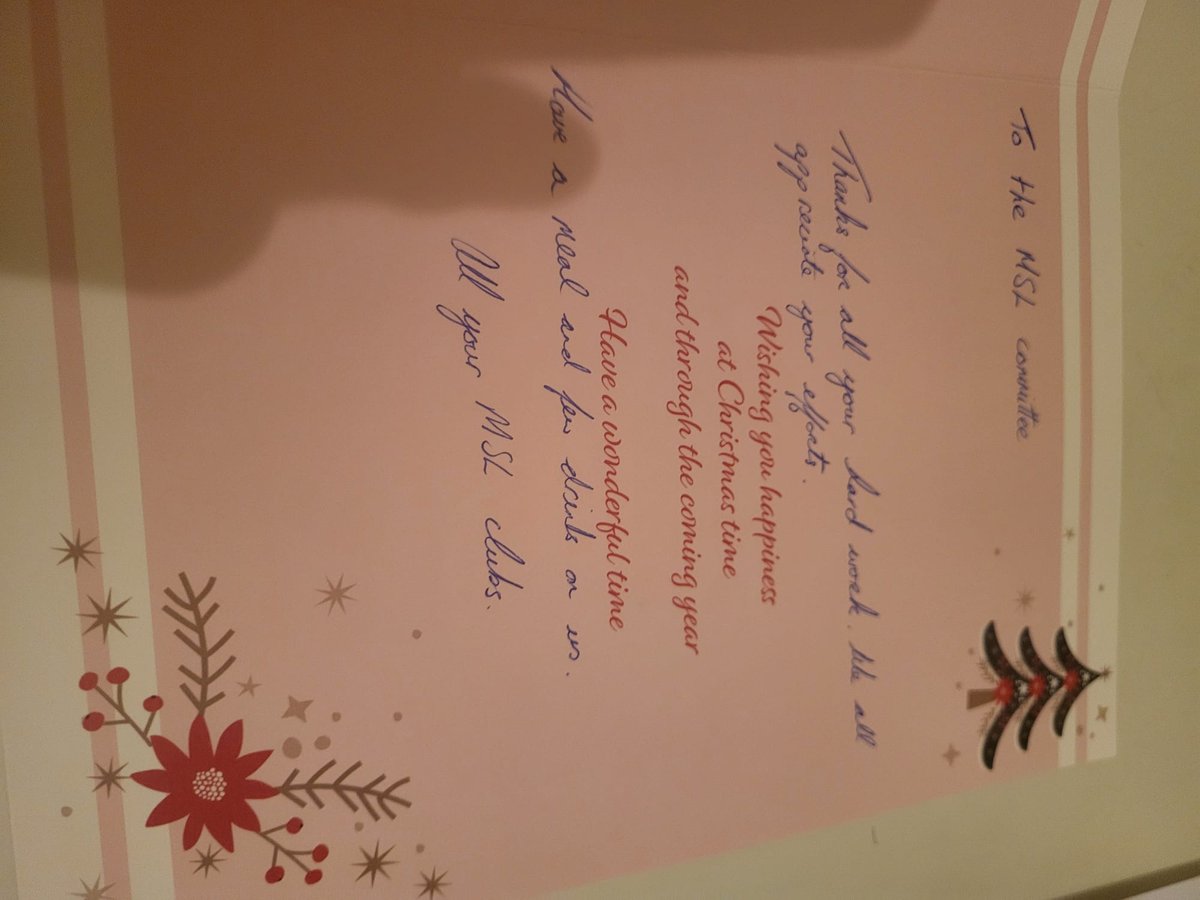 To the MSL committee
Thanks for all your hard work. We all
appreciate your efforts.
Wishing you happiness
at Christmas time
and through the coming year
Have a wonderful time
Have a meal and few drinks on us.
All your MSL clubs.